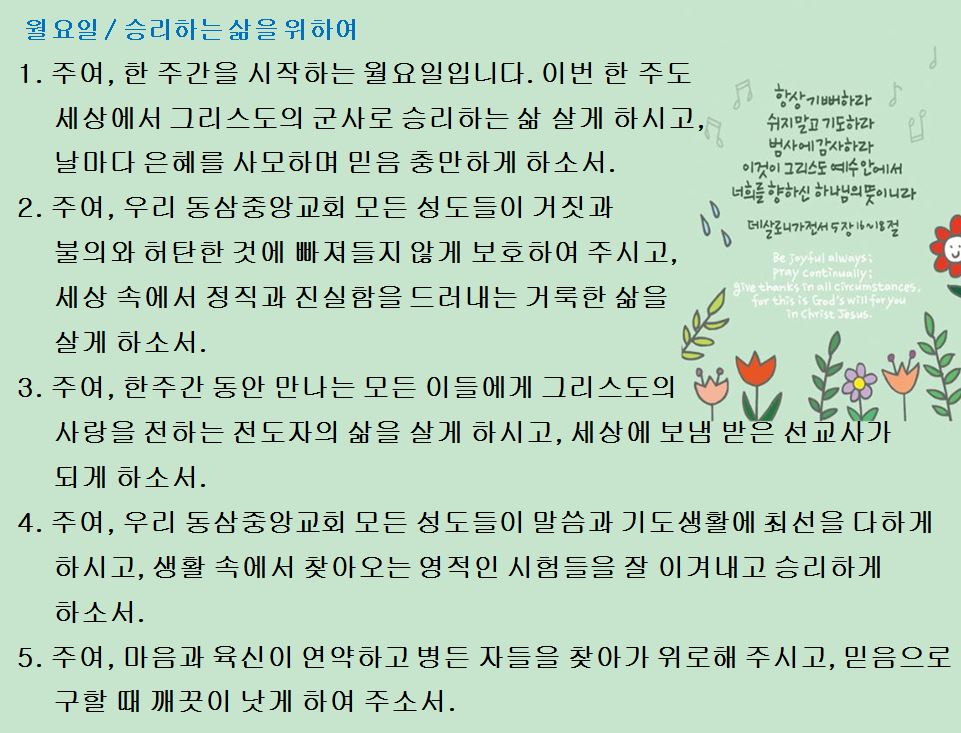 월요일 / 승리하는 삶을 위하여
1. 주여, 한 주간을 시작하는 월요일입니다. 이번 한 주도
세상에서 그리스도의 군사로 승리하는 삶 살게 하시고,
날마다 은혜를 사모하며 믿음 충만하게 하소서.
2. 주여, 우리 동삼중앙교회 모든 성도들이 거짓과
불의와 허탄한 것에 빠져들지 않게 보호하여 주시고,
세상 속에서 정직과 진실함을 드러내는 거룩한 삶을
살게 하소서.
3. 주여, 한주간 동안 만나는 모든 이들에게 그리스도의
사랑을 전하는 전도자의 삶을 살게 하시고, 세상에 보냄 받은 선교사가
되게 하소서.
4. 주여, 우리 동삼중앙교회 모든 성도들이 말씀과 기도생활에 최선을 다하게
하시고, 생활 속에서 찾아오는 영적인 시험들을 잘 이겨내고 승리하게
하소서.
5. 주여, 마음과 육신이 연약하고 병든 자들을 찾아가 위로해 주시고, 믿음으로
구할 때 깨끗이 낫게 하여 주소서.
항상 기뻐하라
쉬지말고 기도하라
범사에 감사하라
이것이 그리스도 예수 안에서
너희를 향하신 하나님의 뜻이니라
데살로니가전서 5장 16~18절
Be joyful always;
pray continually;
give thanks in all circumstances,
for this is God's will for you
in Christ Jesus.